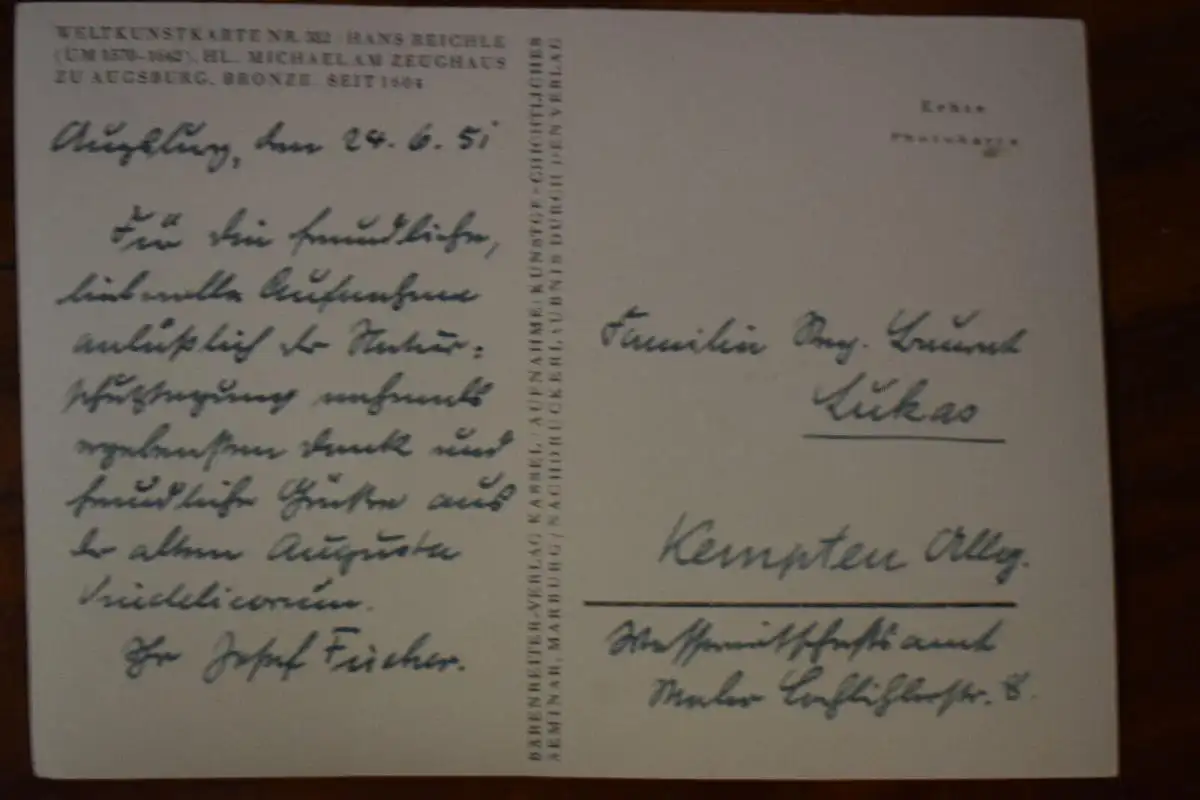 WELTKUNSTKARTE NR. 382 HANS REICHLE
(UM 1570–1642). HL. MICHAEL AM ZEUGHAUS
ZU AUGSBURG. BRONZE. SEIT 1604
Augsburg, den 24. 6. 51
Für die freundliche,
liebevolle Aufnahme
anläßlich der Natur-
schutztagung nochmals
ergebensten Dank und
freundliche Grüße aus
der alten Augusta
Vindelicorum.
Ihr Josef Fischer.
BÄRENREITER-VERLAG KASSEL / AUFNAHME: KUNSTGESCHICHTLICHES
SEMINAR, MARBURG / NACHDRUCK ERLAUBNIS DURCH DEN VERLAG
Echte
Photokarte
Familie Reg. Baurat
Lukas
Kempten Allg.
Wasserwirtschaftsamt
Maler Lochbihlerstr. 8.